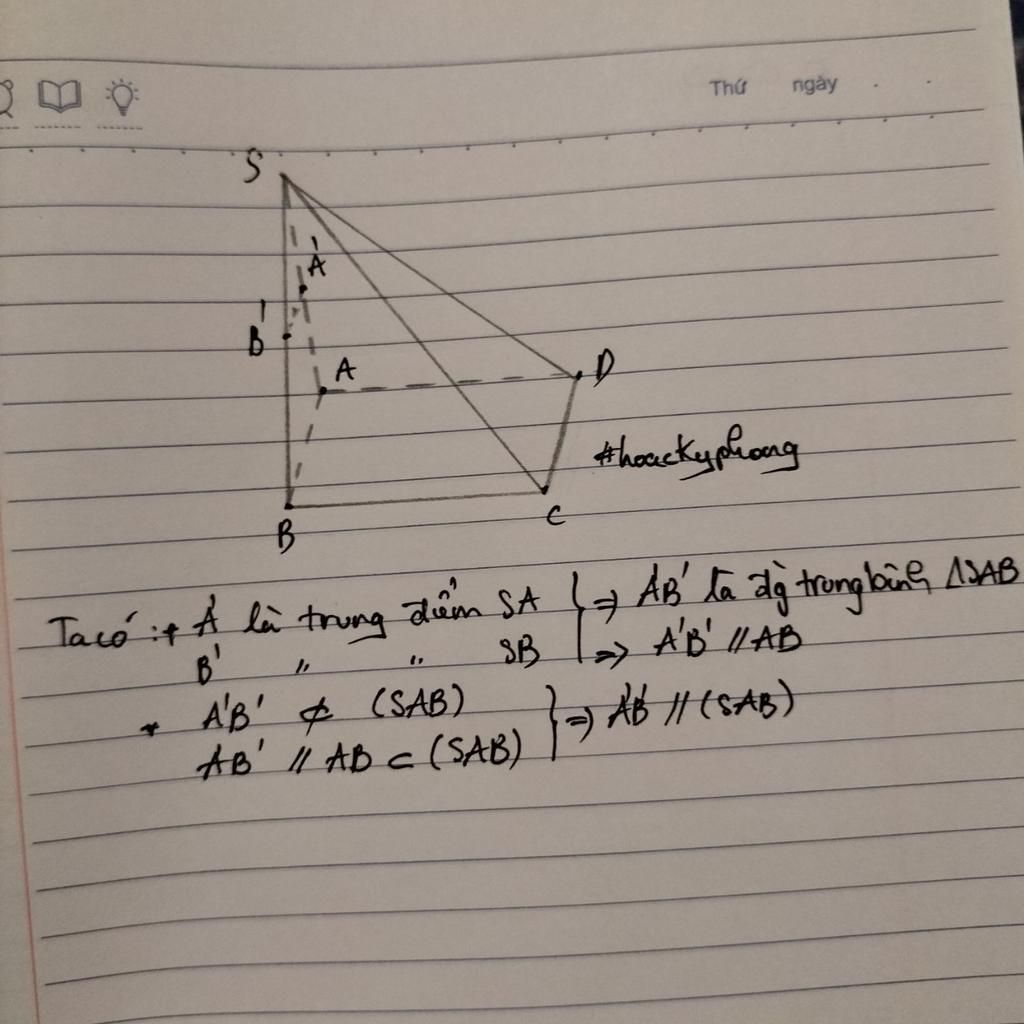 Thứ ngày
S
A'
B'
A
D
#hoackyphong
B
C
Ta có : + A' là trung điểm SA } => A'B' là đg trung bình ΔSAB
B' " " SB => A'B' // AB
+ A'B' ⊄ (SAB) } => A'B' // (SAB)
A'B' // AB ⊂ (SAB)